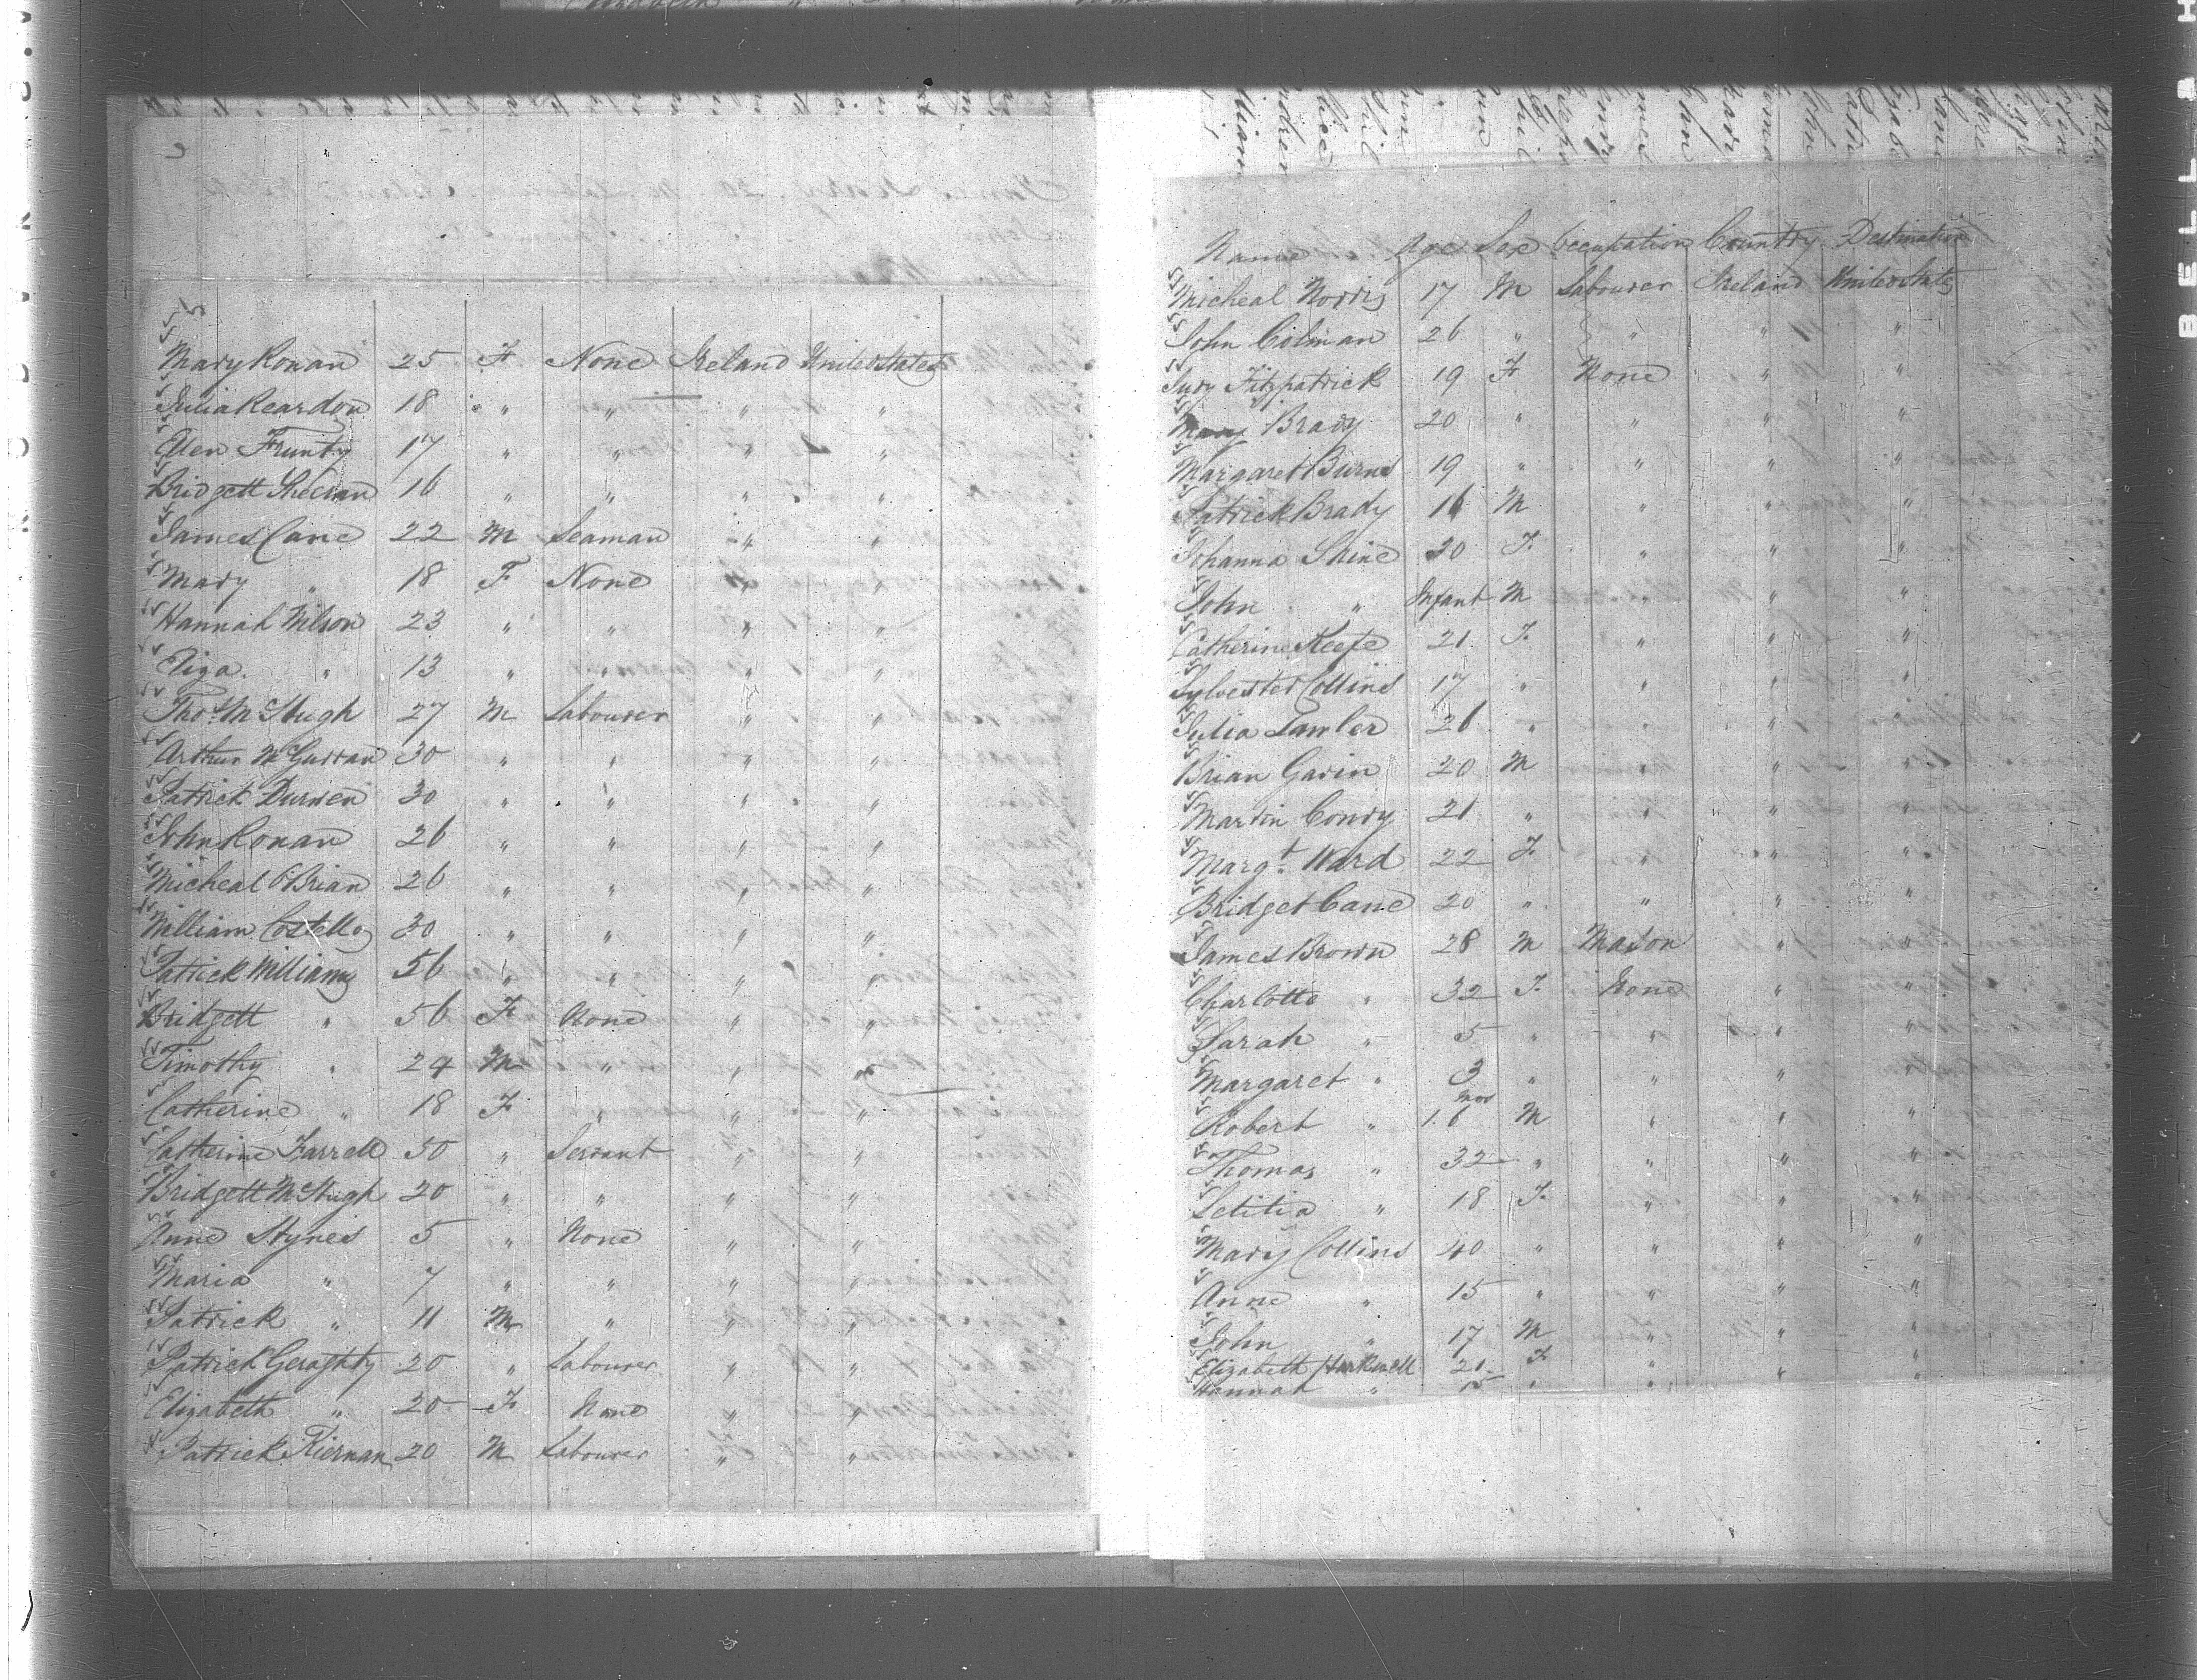 Mary Ronan 25 F None Ireland United States
Julia Reardon 18 " " " "
Ellen Frunty 17 " " " "
Bridgett Sheeran 16 " " " "
James Cane 22 M Seaman " "
Mary " 18 F None " "
Hannah Wilson 23 " " " "
Eliza " 13 " " " "
Thos. McHugh 27 M Labourer " "
Arthur McGurran 30 " " " "
Patrick Durnen 30 " " " "
John Ronan 26 " " " "
Micheal O'Brian 26 " " " "
William Costello 30 " " " "
Patrick Williams 56 " " " "
Bridgett " 56 F None " "
Timothy " 24 M " " "
Catherine " 18 F " " "
Catherine Farrell 50 " Servant " "
Bridgett McHugh 20 " " " "
Anne Stynes 5 " None " "
Maria " 7 " " " "
Patrick " 11 M " " "
Patrick Geraghty 20 " Labourer " "
Elizabeth " 20 F None " "
Patrick Kiernan 20 M Labourer " "
Name Age Sex Occupation Country Destination
Micheal Norris 17 M Labourer Ireland United States
John Colman 26 " " " "
Judy Fitzpatrick 19 F None " "
Mary Brady 20 " " " "
Margaret Burns 19 " " " "
Patrick Brady 16 M " " "
Johanna Shine 30 F " " "
John " Infant M " " "
Catherine Keefe 21 F " " "
Sylvester Collins 17 " " " "
Julia Lawler 26 " " " "
Brian Gavin 20 M " " "
Martin Conry 21 " " " "
Margt. Ward 22 F " " "
Bridget Cane 20 " " " "
James Brown 28 M Mason " "
Charlotte " 32 F None " "
Sarah " 5 " " " "
Margaret " 3 " " " "
Robert " 1.6 mos M " " "
Thomas " 32 " " " "
Letitia " 18 F " " "
Mary Collins 40 " " " "
Anne " 15 " " " "
John " 17 M " " "
Elizabeth Harkwell 21 F " " "
Hannah " 15 " " " "
BELL & H